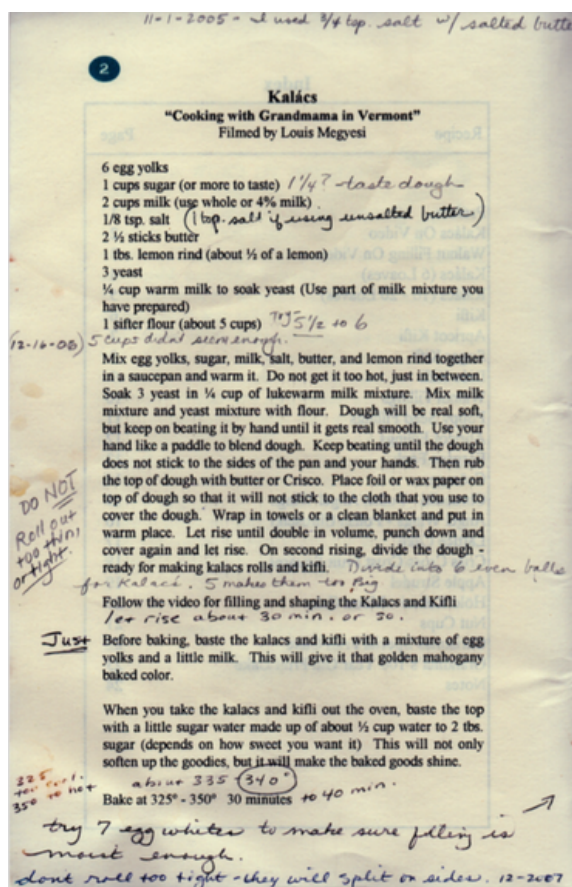 11-1-2005 - I used 3/4 tsp. salt w/ salted butte
2
Kalács
"Cooking with Grandmama in Vermont"
Filmed by Louis Megyesi
6 egg yolks
1 cups sugar (or more to taste) 1 1/4? - taste dough
2 cups milk (use whole or 4% milk)
1/8 tsp. salt (1 tsp. salt if using unsalted butter)
2 ½ sticks butter
1 tbs. lemon rind (about ½ of a lemon)
3 yeast
¼ cup warm milk to soak yeast (Use part of milk mixture you
have prepared)
1 sifter flour (about 5 cups) Try 5 1/2 to 6
(12-16-08) 5 cups didn't seem enough.
Mix egg yolks, sugar, milk, salt, butter, and lemon rind together
in a saucepan and warm it. Do not get it too hot, just in between.
Soak 3 yeast in ¼ cup of lukewarm milk mixture. Mix milk
mixture and yeast mixture with flour. Dough will be real soft,
but keep on beating it by hand until it gets real smooth. Use your
hand like a paddle to blend dough. Keep beating until the dough
does not stick to the sides of the pan and your hands. Then rub
the top of dough with butter or Crisco. Place foil or wax paper on
top of dough so that it will not stick to the cloth that you use to
cover the dough. Wrap in towels or a clean blanket and put in
warm place. Let rise until double in volume, punch down and
cover again and let rise. On second rising, divide the dough -
ready for making kalacs rolls and kifli. Divide into 6 even balls
for Kalacs. 5 makes them too big
DO NOT
Roll out
too thin,
or tight.
Follow the video for filling and shaping the Kalacs and Kifli
let rise about 30 min. or so.
Just Before baking, baste the kalacs and kifli with a mixture of egg
yolks and a little milk. This will give it that golden mahogany
baked color.
When you take the kalacs and kifli out the oven, baste the top
with a little sugar water made up of about ½ cup water to 2 tbs.
sugar (depends on how sweet you want it) This will not only
soften up the goodies, but it will make the baked goods shine.
325
too cool.
350 to hot
about 335 - 340°
Bake at 325° - 350° 30 minutes to 40 min.
try 7 egg whites to make sure filling is
moist enough.
dont roll too tight - they will split on sides. 12-2007